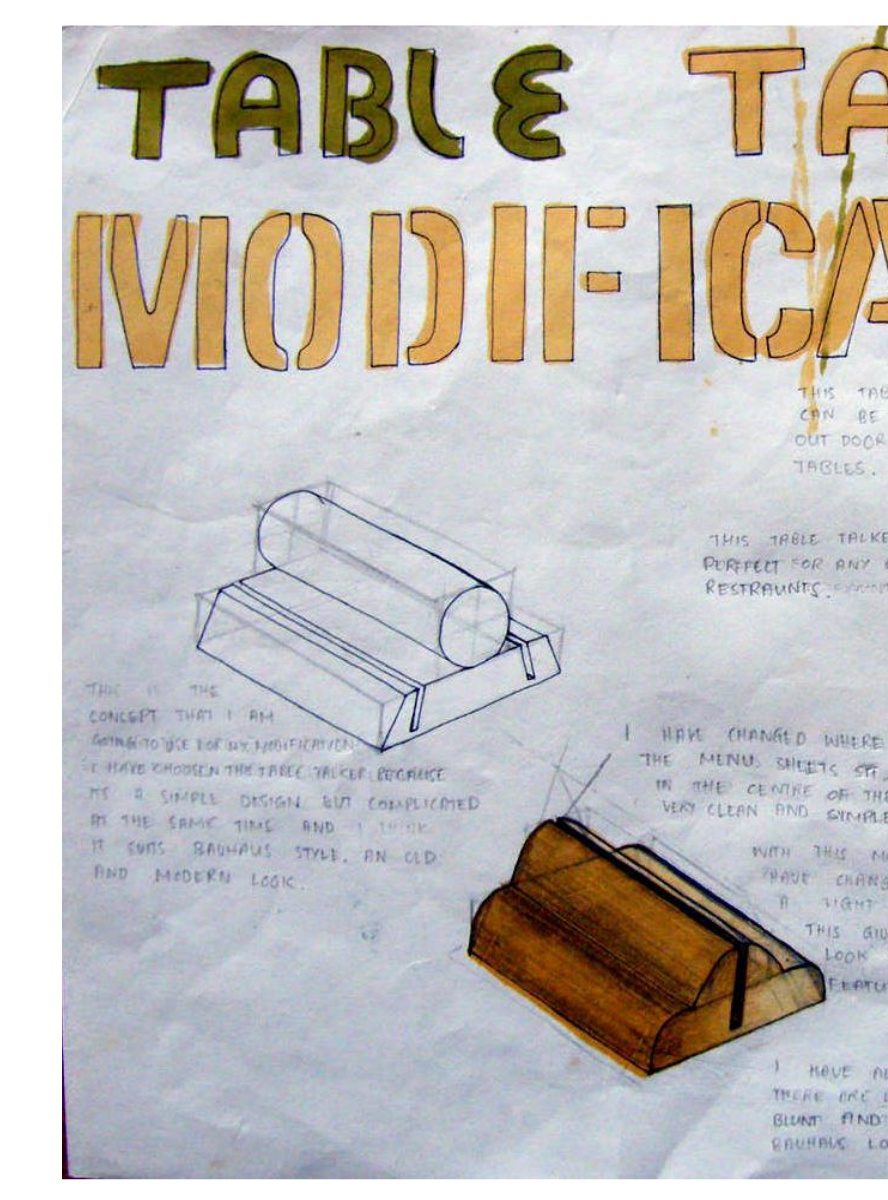 TABLE TA
MODIFICA
THIS TAB
CAN BE
OUT DOOR
TABLES.
THIS TABLE TALKE
PERFECT FOR ANY
RESTRAUNTS.
THIS IS THE
CONCEPT THAT I AM
GOING TO USE FOR MY MODIFICATION
I HAVE CHOOSEN THE TABLE TALKER BECAUSE
ITS A SIMPLE DESIGN BUT COMPLICATED
AT THE SAME TIME AND I THINK
IT SUITS BAUHAUS STYLE. AN OLD
AND MODERN LOOK.
I HAVE CHANGED WHERE
THE MENU SHEETS SIT
IN THE CENTRE OF THE
VERY CLEAN AND SIMPLE
WITH THIS M
HAVE CHANG
A LIGHT
THIS GIV
LOOK
FEATU
I HAVE AL
THERE ARE
BLUNT AND
BAUHAUS LO